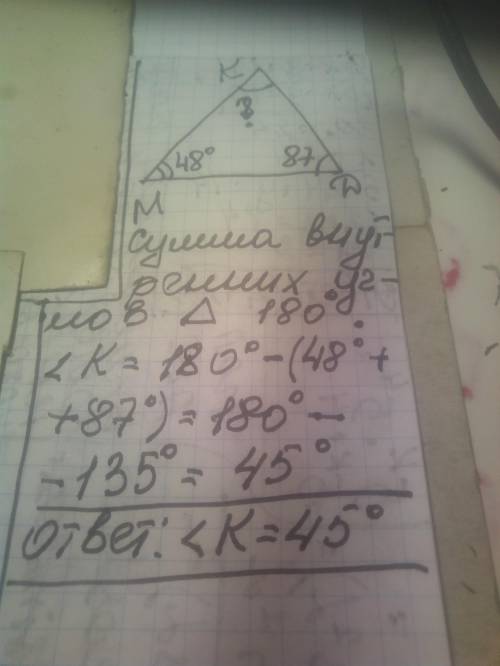 K
?
48° 87
M D
Сумма внут-
ренних уг-
лов △ 180°.
<K = 180° - (48° +
+ 87°) = 180° -
- 135° = 45°
Ответ: <K = 45°